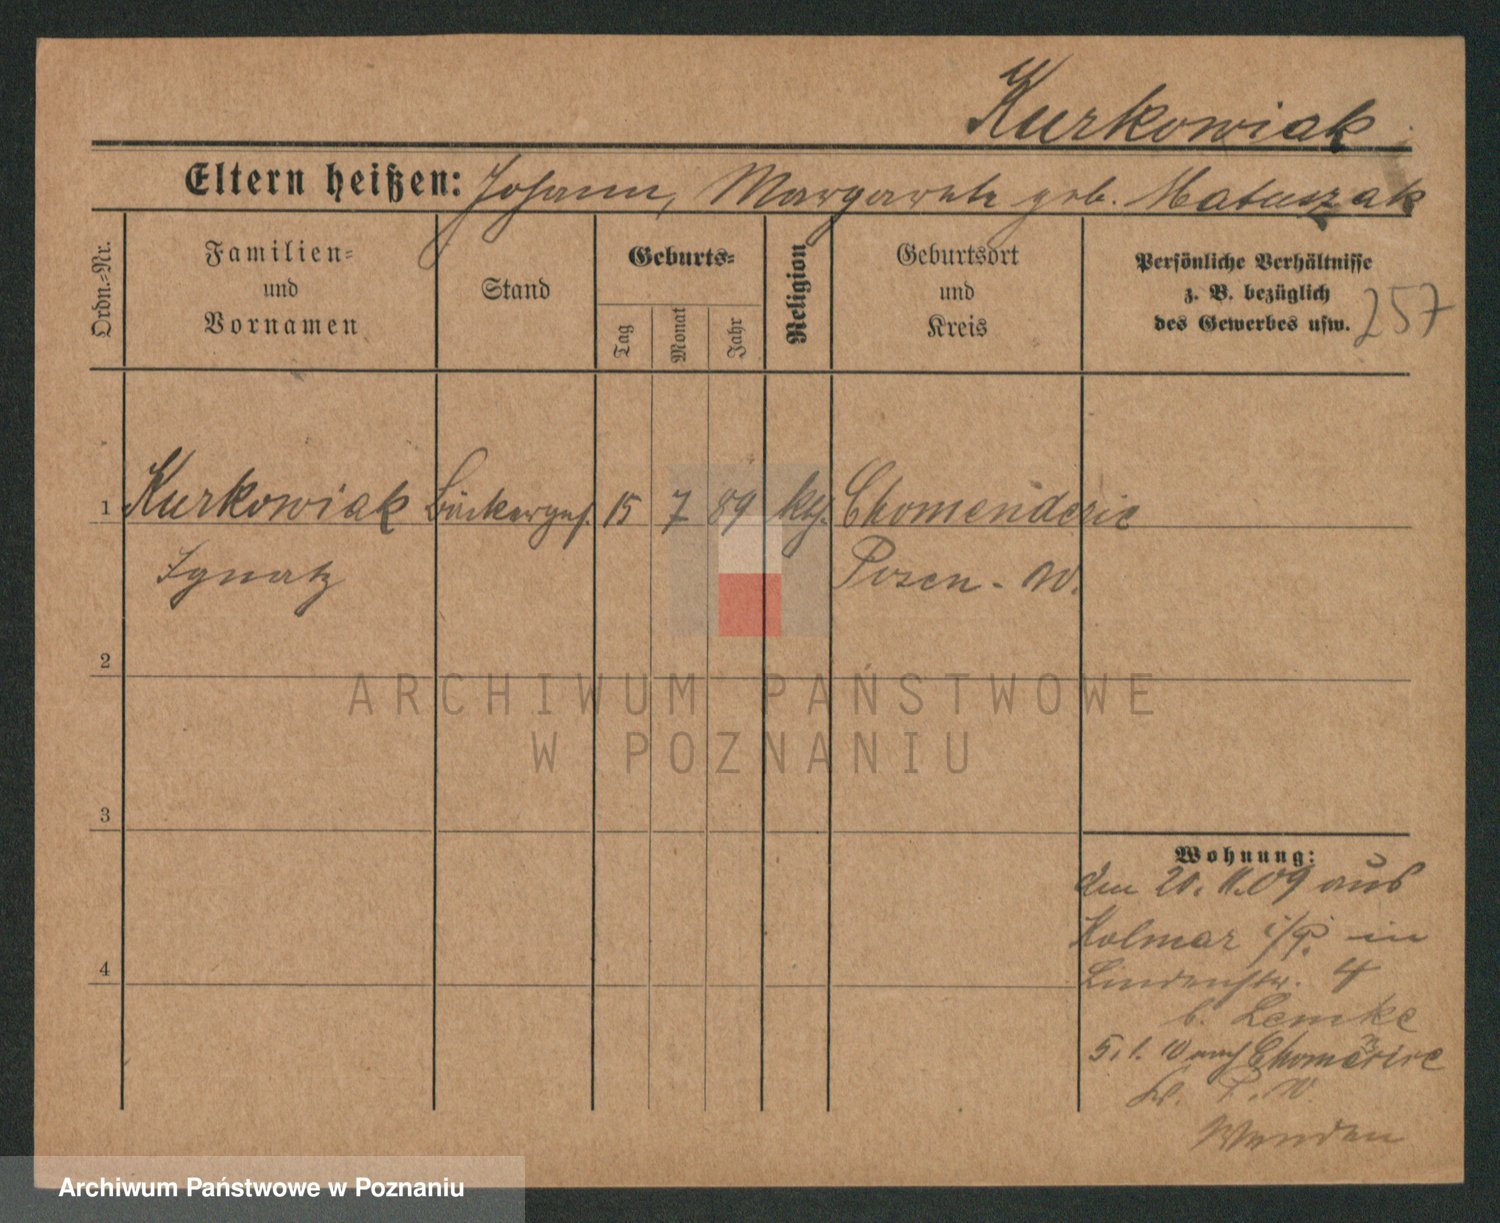 Kurkowiak
Eltern heißen: Johann, Margareth geb. Matuszak
Ordn.-Nr.
Familien-
und
Vornamen
Stand
Geburts-
Tag
Monat
Jahr
Religion
Geburtsort
und
Kreis
Persönliche Verhältnisse
z. B. bezüglich
des Gewerbes usw.
257
1 Kurkowiak Bäckerges. 15 7 89 kth. Chomenderie
Ignatz Posen - W.
2
3
4
Wohnung:
den 20. 11. 09 aus
Kolmar i/P. in
Lindenstr. 4
b. Lemke
5. 1. 10 nach
Kr. P. W.
Wenden
ARCHIWUM PAŃSTWOWE
W POZNANIU
Archiwum Państwowe w Poznaniu